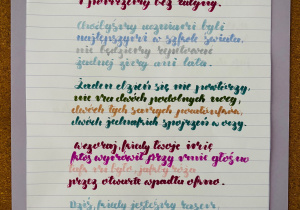 i pomrzemy bez rutyny.
Choćbyśmy uczniami byli
najtępszymi w szkole świata,
nie będziemy repetować
żadnej zimy ani lata.
Żaden dzień się nie powtórzy,
nie ma dwóch podobnych nocy,
dwóch tych samych pocałunków,
dwóch jednakich spojrzeń w oczy.
Wczoraj, kiedy twoje imię
ktoś wymówił przy mnie głośno
tak mi było, jakby róża
przez otwarte wpadła okno.
Dziś, kiedy jesteśmy razem,